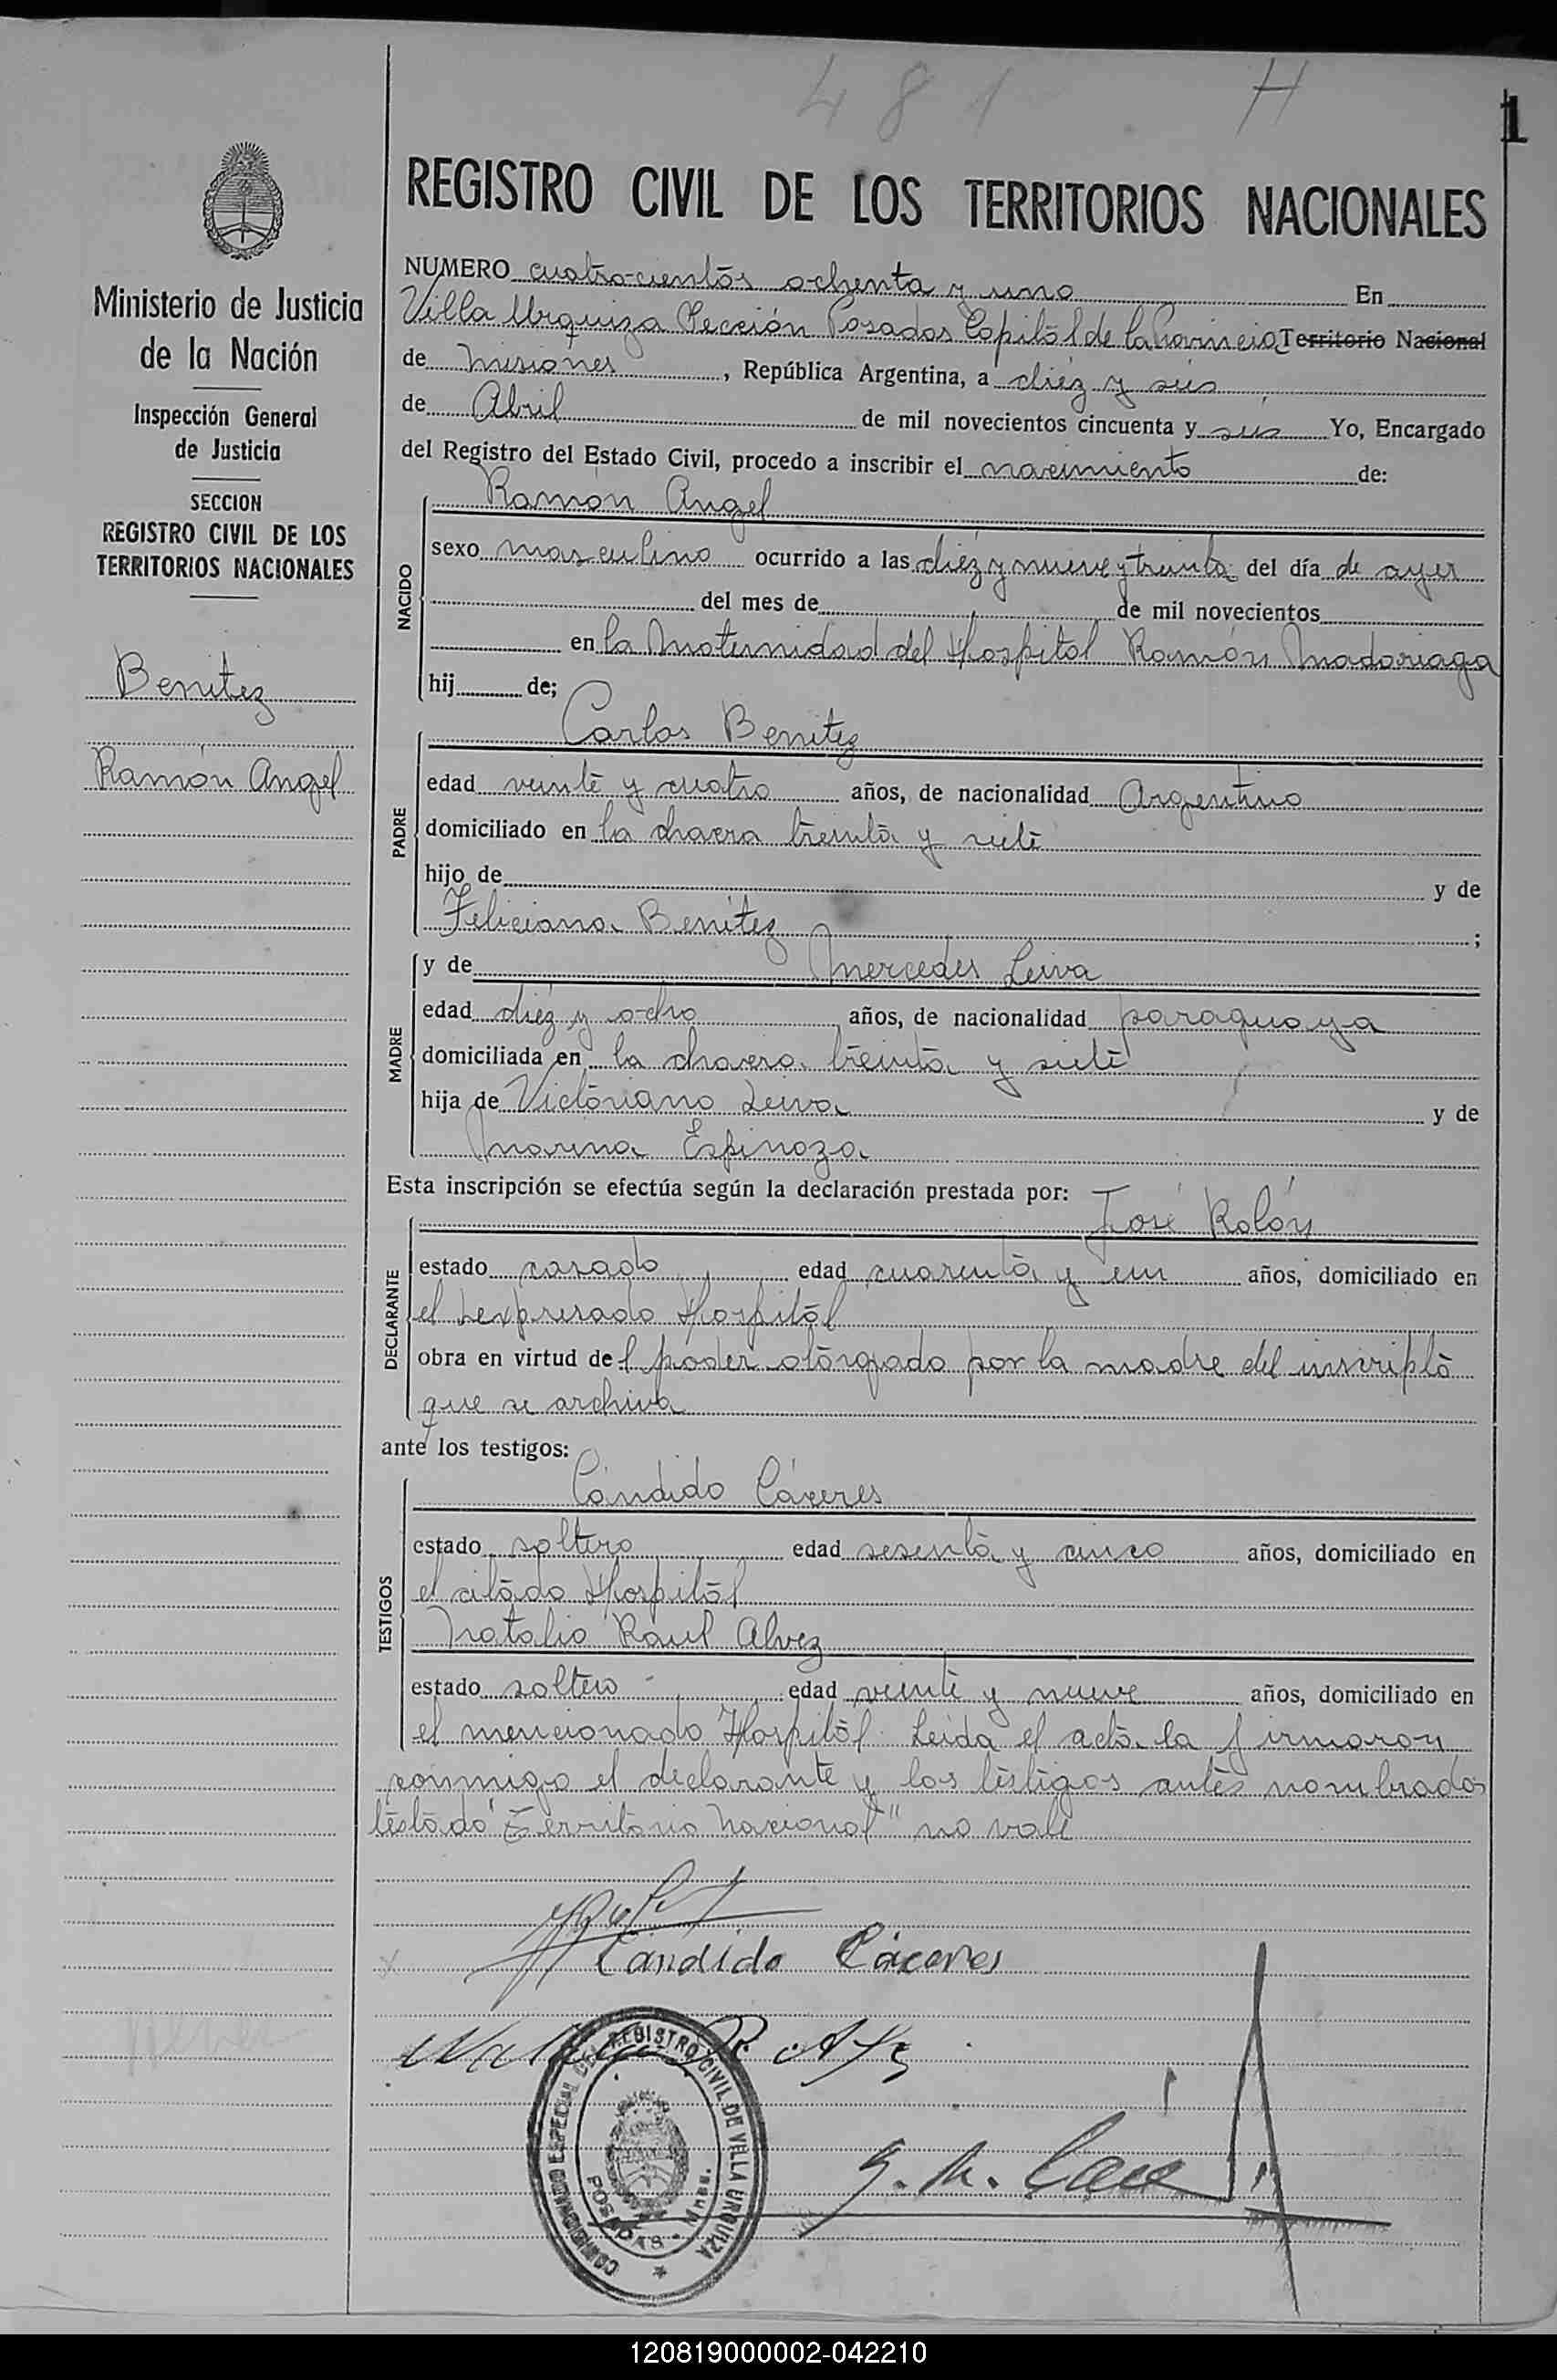 481 H
1
REGISTRO CIVIL DE LOS TERRITORIOS NACIONALES
Ministerio de Justicia
de la Nación
Inspección General
de Justicia
SECCION
REGISTRO CIVIL DE LOS
TERRITORIOS NACIONALES
Benitez
Ramón Angel
NUMERO cuatrocientos ochenta y uno En
Villa Urquiza Sección Posadas Capital de la Provincia Territorio Nacional
de Misiones, República Argentina, a diéz y seis
de Abril de mil novecientos cincuenta y seis Yo, Encargado
del Registro del Estado Civil, procedo a inscribir el nacimiento de:
Ramón Angel
NACIDO
sexo masculino ocurrido a las diéz y nueve y treinta del día de ayer
del mes de de mil novecientos
en la Maternidad del Hospital Ramón Madariaga
hij de;
Carlos Benitez
PADRE
edad veinte y cuatro años, de nacionalidad Argentino
domiciliado en la chacra treinta y siete
hijo de y de
Feliciana Benitez ;
y de Mercedes Leiva
MADRE
edad diéz y ocho años, de nacionalidad paraguaya
domiciliada en la chacra treinta y siete
hija de Victoriano Leiva y de
Marina Espinoza
Esta inscripción se efectúa según la declaración prestada por:
José Rolón
DECLARANTE
estado casado edad cuarenta y un años, domiciliado en
el expresado Hospital
obra en virtud del poder otorgado por la madre del inscripto
que se archiva
ante los testigos:
Cándido Cáceres
TESTIGOS
estado soltero edad sesenta y cinco años, domiciliado en
el citado Hospital
Natalio Raul Alvez
estado soltero edad veinte y nueve años, domiciliado en
el mencionado Hospital. Leida el acta la firmaron
conmigo el declarante y los testigos antes nombrados
testado "Territorio Nacional" no vale
Cándido Cáceres
REGISTRO CIVIL DE VILLA URQUIZA
POSADAS - Mnes.
120819000002-042210